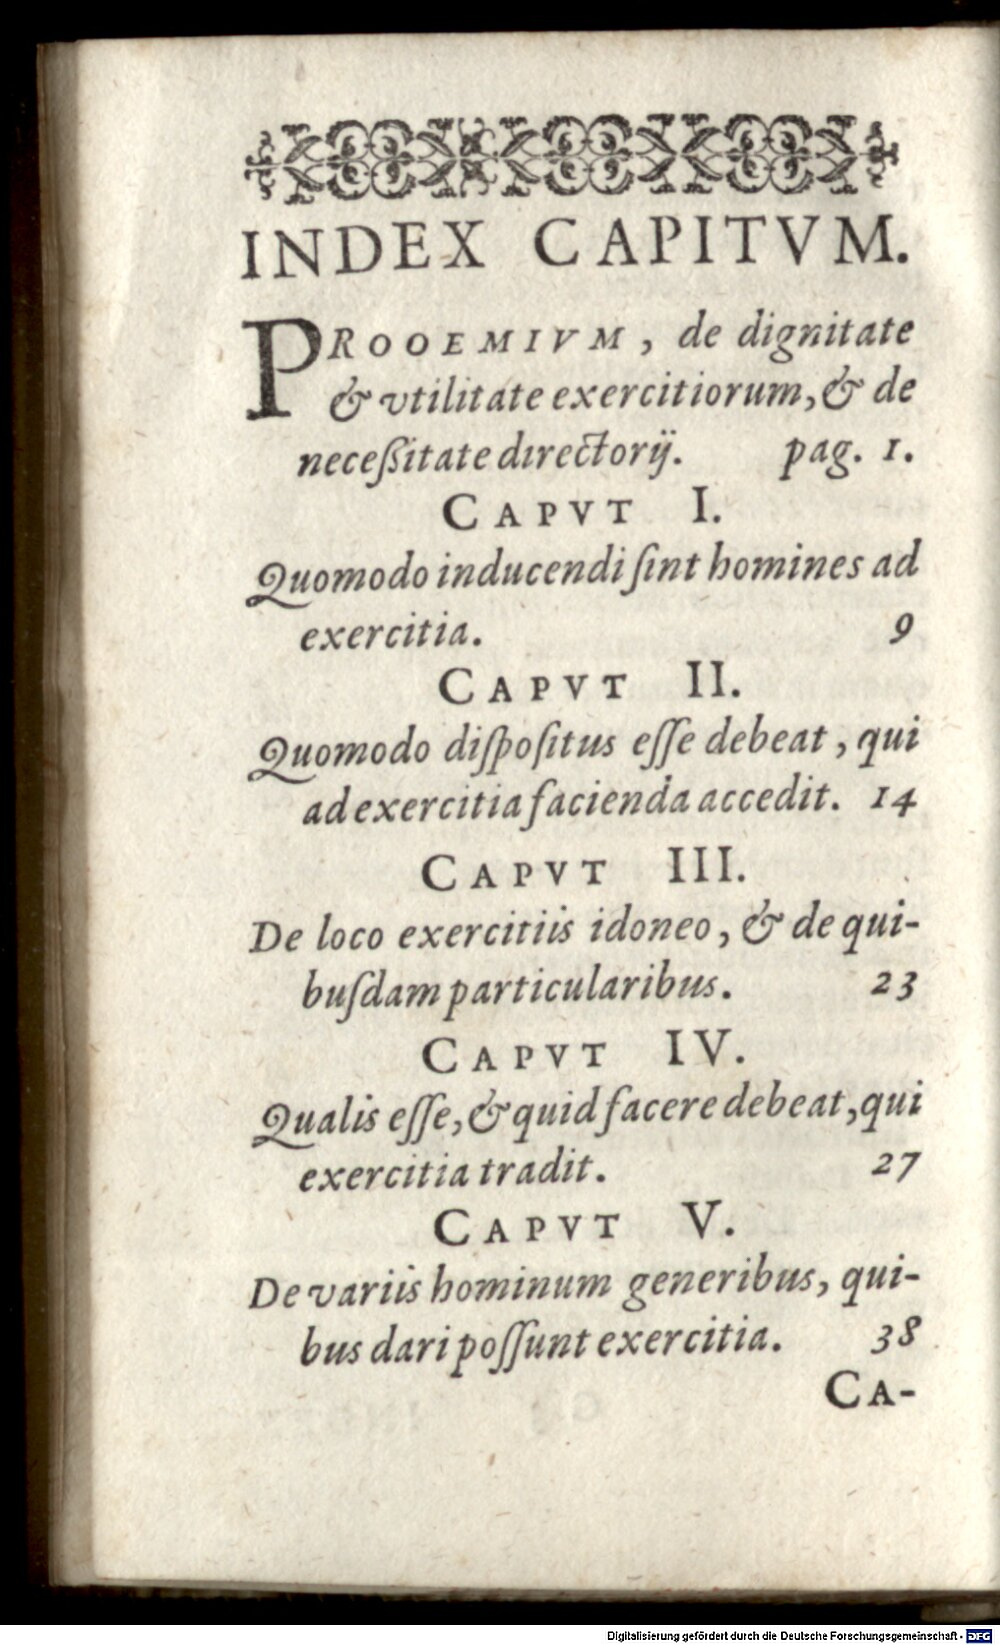 INDEX CAPITVM.
PROOEMIVM, de dignitate
& vtilitate exercitiorum, & de
neceßitate directorij. pag. 1.
CAPVT I.
Quomodo inducendi ſint homines ad
exercitia. 9
CAPVT II.
Quomodo diſpoſitus eſſe debeat, qui
ad exercitia facienda accedit. 14
CAPVT III.
De loco exercitiis idoneo, & de qui-
buſdam particularibus. 23
CAPVT IV.
Qualis eſſe, & quid facere debeat, qui
exercitia tradit. 27
CAPVT V.
De variis hominum generibus, qui-
bus dari poſſunt exercitia. 38
CA-
Digitalisierung gefördert durch die Deutsche Forschungsgemeinschaft - DFG